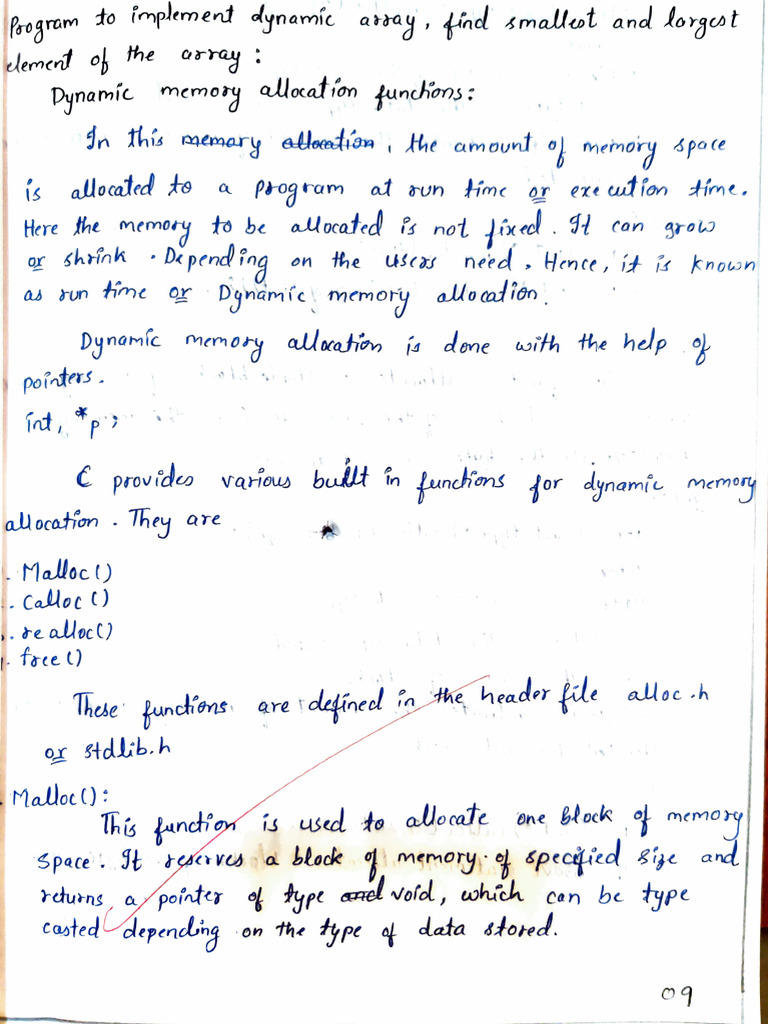 Program to implement dynamic array, find smallest and largest
element of the array:
Dynamic memory allocation functions:
In this memory allocation, the amount of memory space
is allocated to a program at run time or execution time.
Here the memory to be allocated is not fixed. It can grow
or shrink. Depending on the users need. Hence, it is known
as run time or Dynamic memory allocation.
Dynamic memory allocation is done with the help of
pointers.
int, *p;
C provides various built in functions for dynamic memory
allocation. They are
. Malloc()
. Calloc()
. realloc()
. free()
These functions are defined in the header file alloc.h
or stdlib.h
. Malloc():
This function is used to allocate one block of memory
space. It reserves a block of memory of specified size and
returns a pointer of type and void, which can be type
casted depending on the type of data stored.
09